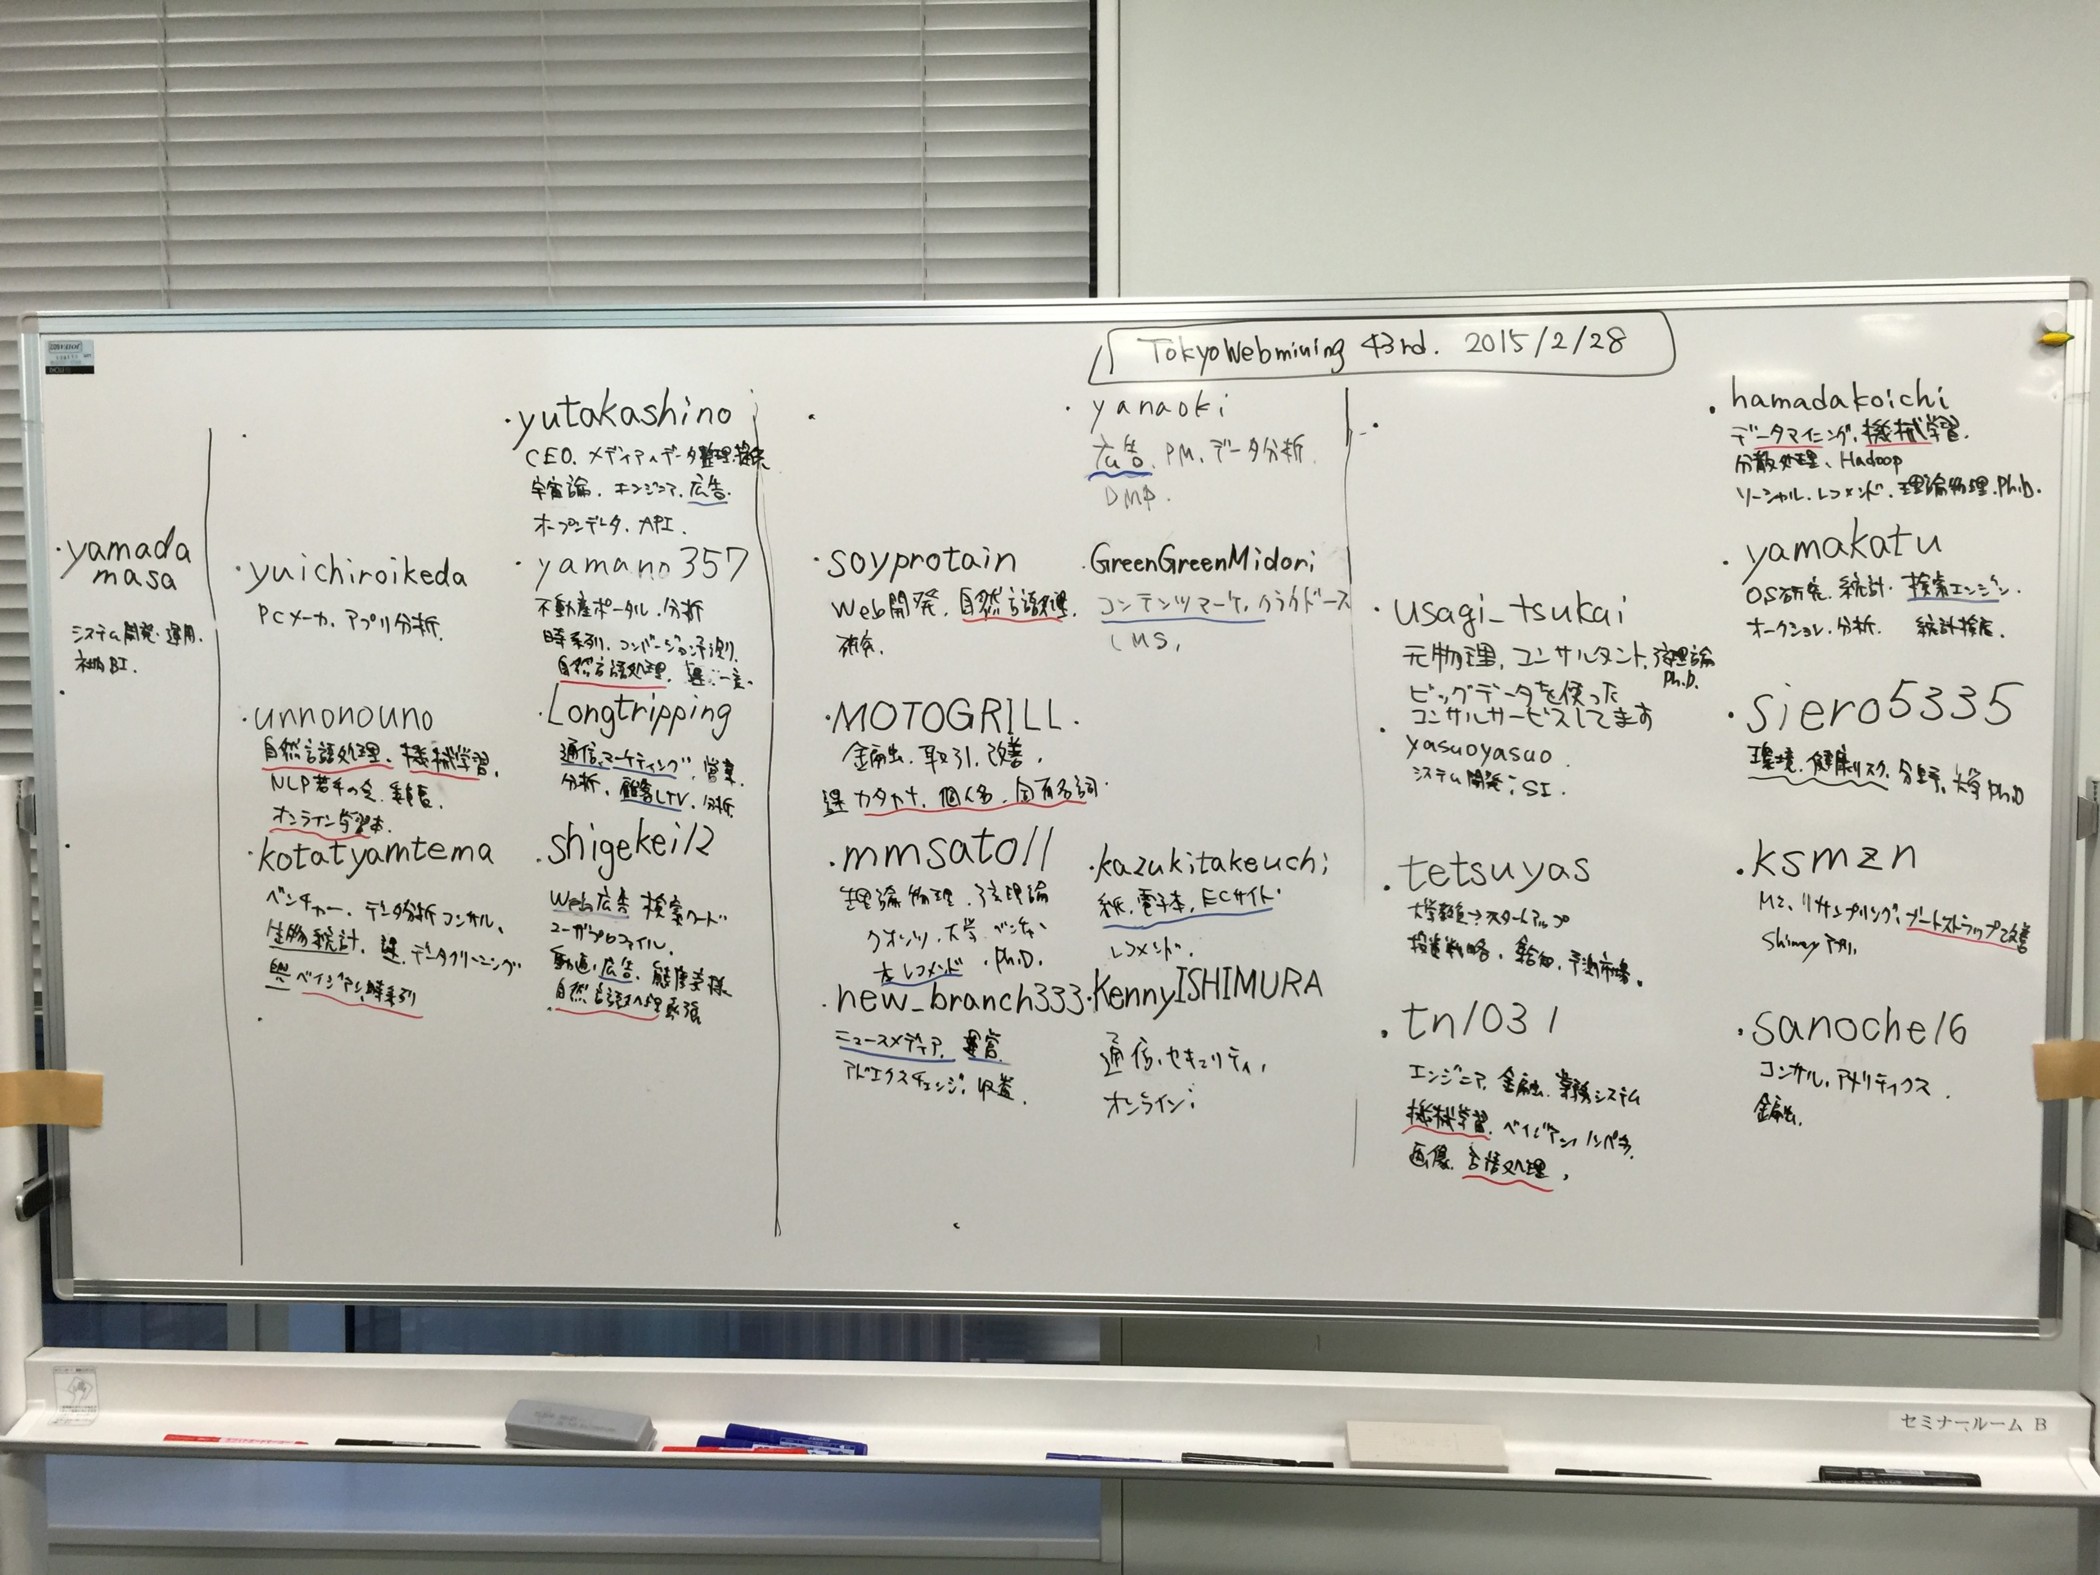 TokyoWebmining 43rd. 2015/2/28
yamada
masa
システム開発・運用.
社内BI.
yuichiroikeda
PCメーカ. アプリ分析.
unnonouno
自然言語処理、機械学習.
NLP若手の会. 委員.
オンライン学習本.
kotatyamtema
ベンチャー. データ分析コンサル.
生物統計. データクリーニング
ベイジアン, 時系列
yutakashino
CEO. メディア、データ整理
宇宙論. エンジニア. 広告.
オープンデータ. API.
yamano357
不動産ポータル. 分析
時系列. コンバージョン予測.
自然言語処理.
Longtripping
通信. マーケティング. 営業.
分析. 顧客LTV. 分析
shigekei12
Web広告 検索ワード
ユーザプロファイル.
動画. 広告.
自然言語処理
soyprotain
Web開発. 自然言語処理.
MOTOGRILL.
金融. 取引. 改善.
カタカナ. 個人名. 固有名詞.
mmsato11
理論物理. 弦理論
クオンツ. 大学. ベンチャー
レコメンド. Ph.D.
new_branch333
ニュースメディア. 運営.
アドエクスチェンジ.
yanaoki
広告. PM. データ分析.
DMP.
GreenGreenMidori
コンテンツマーケ. クラウドソース
CMS.
kazukitakeuchi
紙. 電子本. ECサイト.
レコメンド.
KennyISHIMURA
通信. セキュリティ.
オンライン
usagi_tsukai
元物理. コンサルタント.
Ph.D.
ビッグデータを使った
コンサルサービスしてます
yasuoyasuo
システム開発. SI.
tetsuyas
大学教員→スタートアップ
投資戦略. 予測市場.
tn1031
エンジニア. 金融. 業務システム
機械学習. ベイジアン, ノンパラ.
画像. 言語処理.
hamadakoichi
データマイニング. 機械学習.
分散処理、Hadoop
ソーシャル. レコメンド. 理論物理. Ph.D.
yamakatu
OS研究. 統計. 検索エンジン.
オークション. 分析. 統計検定.
siero5335
環境. 健康リスク. 分野. 大学 Ph.D
ksmzn
M2. リサンプリング. ブートストラップで改善
Shinyアプリ.
sanoche16
コンサル. アナリティクス.
金融.
セミナールーム B